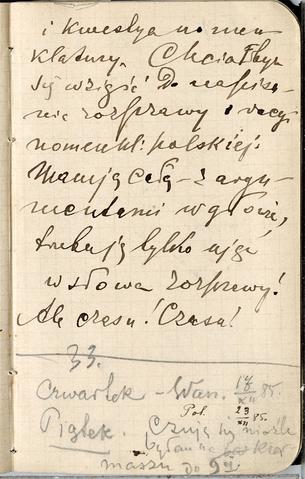 i kwestya nomen
klatury. Chciałbym
się wziąść do napisa-
nia rozprawy o racy
nomenkl: polskiej:
Mam ją całą - z argu-
mentami w głowie,
trzeba ją tylko ująć
w słowa rozprawy!
Ale czasu! Czasu!
33.
Czwartek - Wan. 14/XII 85.
Piątek. Pol. 23/XII 85.
Czuję się nieźle
byłem na
maszu do 9